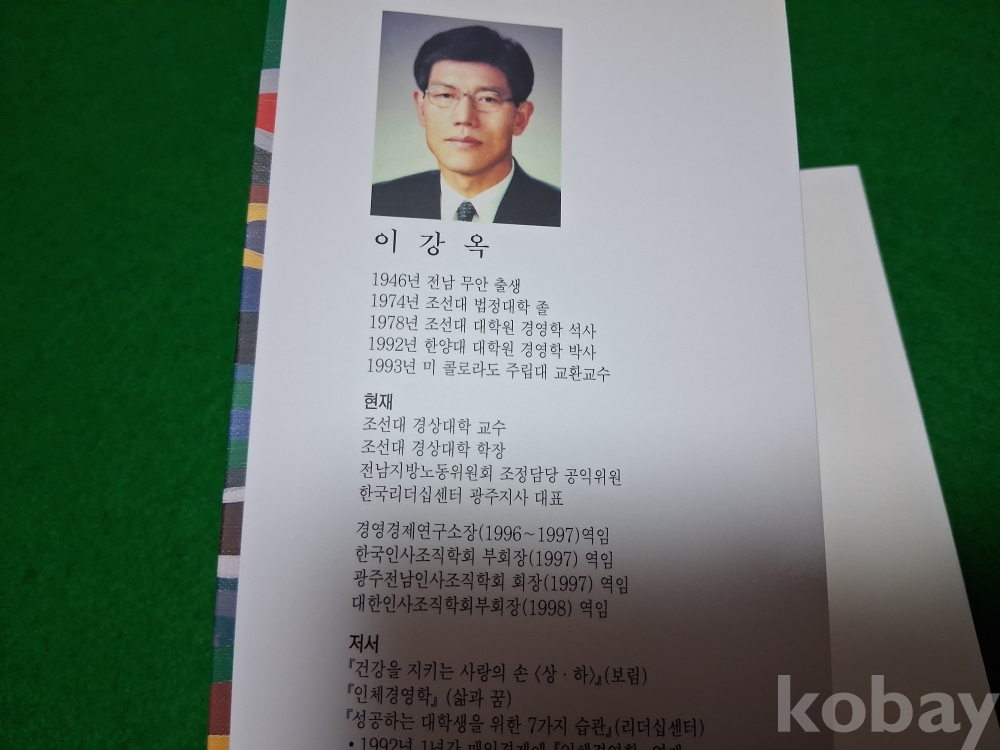 이 강 옥
1946년 전남 무안 출생
1974년 조선대 법정대학 졸
1978년 조선대 대학원 경영학 석사
1992년 한양대 대학원 경영학 박사
1993년 미 콜로라도 주립대 교환교수
현재
조선대 경상대학 교수
조선대 경상대학 학장
전남지방노동위원회 조정담당 공익위원
한국리더십센터 광주지사 대표
경영경제연구소장(1996~1997)역임
한국인사조직학회 부회장(1997) 역임
광주전남인사조직학회 회장(1997) 역임
대한인사조직학회부회장(1998) 역임
저서
『건강을 지키는 사랑의 손 〈상 · 하〉』(보림)
『인체경영학』 (삶과 꿈)
『성공하는 대학생을 위한 7가지 습관』(리더십센터)
· 1992년 1년간 매일경제에 『인체경영학』 연재
kobay